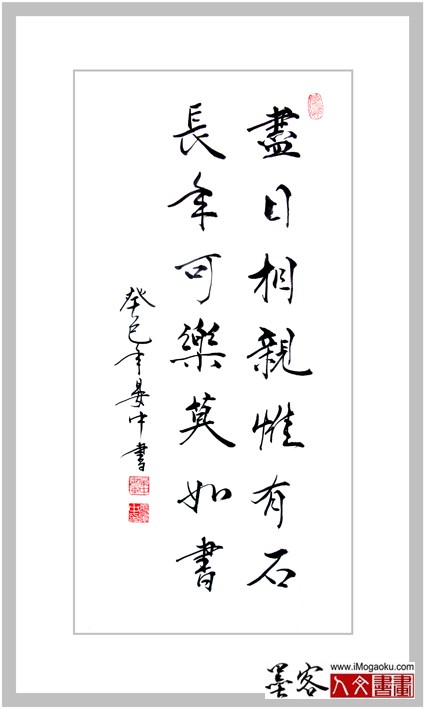 盡日相親惟有石
長年可樂莫如書
癸巳年晏中書
墨客
www.iMogaoku.com
人文書畫